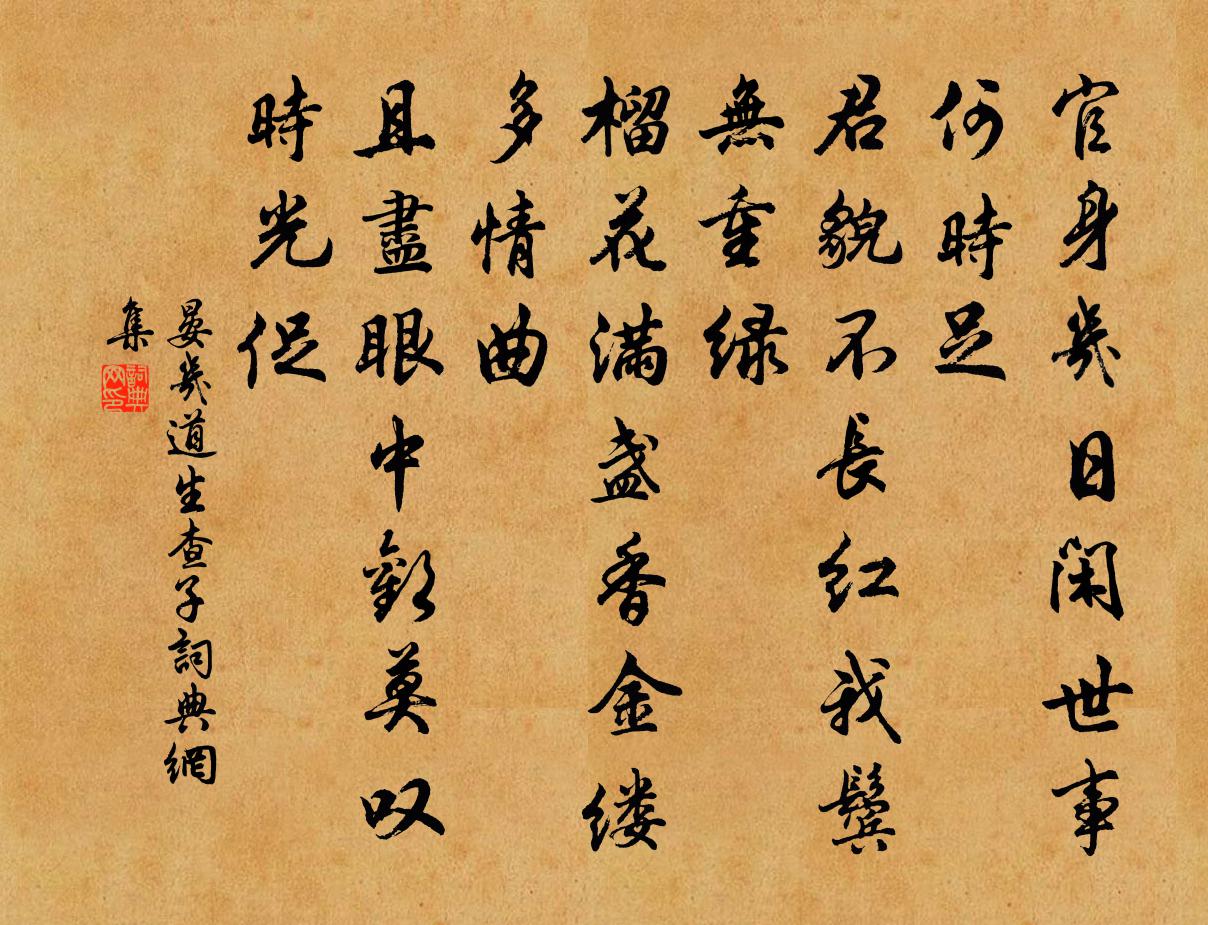 官身幾日閑世事
何時足
君貌不長紅我鬢
無重緑
榴花滿盞香金缕
多情曲
且盡眼中歡莫叹
時光促
晏幾道生查子詞典網
集
詞典网印